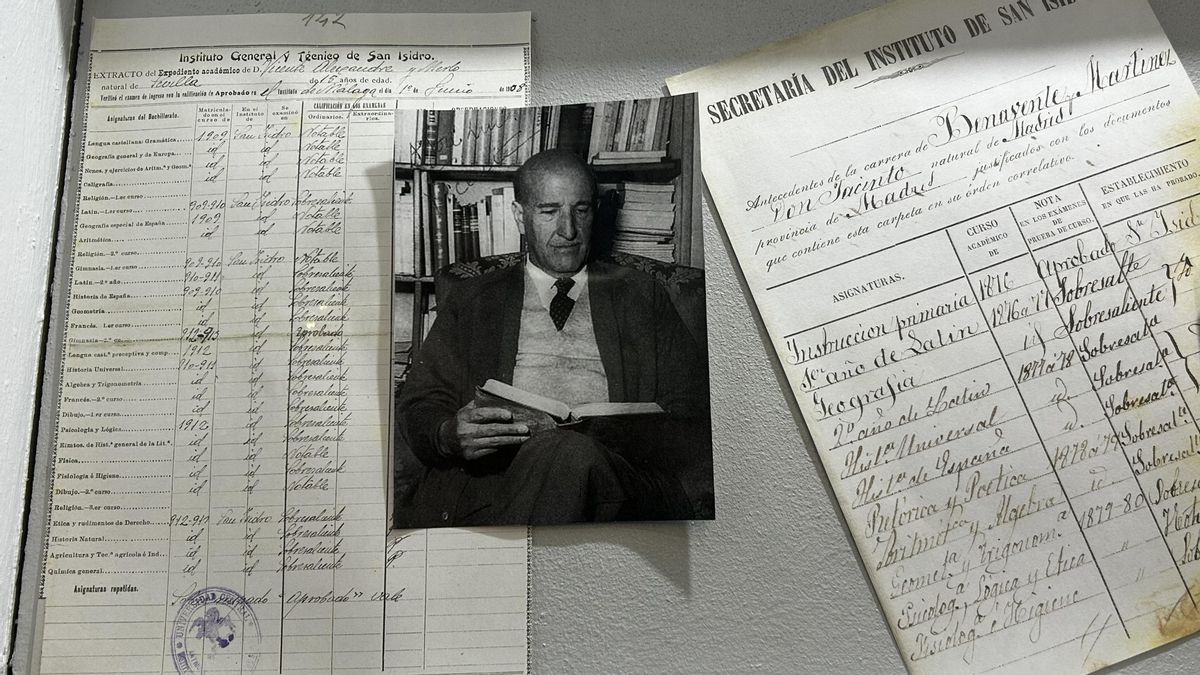 142
Instituto General y Técnico de San Isidro.
EXTRACTO del Expediente académico de D. Vicente Aleixandre y Merlo
natural de Sevilla de 15 años de edad.
Verificó el examen de ingreso con la calificación de Aprobado en el Instituto de Málaga el día 1º de Junio de 190
Asignaturas del Bachillerato. Matriculado en el curso de En el Instituto de Se examinó en CALIFICACIÓN EN LOS EXÁMENES Ordinarios. Extraordinarios. OBSERVACIONES
Lengua castellana: Gramática 1909 San Isidro id Notable
Geografía general y de Europa id id Notable
Nocnes. y ejercicios de Aritm.ª y Geom.ª id id Notable
Caligrafía
Religión.—1.er curso
Latín.—1.er curso 909-910 San Isidro Sobresaliente
Geografía especial de España 1909 id Notable
Aritmética id id Notable
Religión.—2.º curso
Gimnasia.—1.er curso 909-910 San Isidro Notable
Latín.—2.º año 910-911 id Sobresaliente
Historia de España 909-910 id Sobresaliente
Geometría id id Sobresaliente
Francés.—1.er curso id id Sobresaliente
Gimnasia.—2.º curso 912-913 id Aprobado
Lengua cast.ª preceptiva y comp. 1912 id Sobresaliente
Historia Universal 910-911 id Sobresaliente
Algebra y Trigonometría id id Sobresaliente
Francés.—2.º curso id id Sobresaliente
Dibujo.—1.er curso id id Sobresaliente
Psicología y Lógica 1912 id Sobresaliente
Elmtos. de Hist.ª general de la Lit.ª id id Sobresaliente
Física id id Notable
Fisiología é Higiene id id Sobresaliente
Dibujo.—2.º curso id id Notable
Religión.—3.er curso
Etica y rudimentos de Derecho 912-913 San Isidro Sobresaliente
Historia Natural id id Sobresaliente
Agricultura y Tec.ª agrícola é Ind. id id Sobresaliente
Química general id id Sobresaliente
Asignaturas repetidas.
"Aprobado" vale
SECRETARÍA DEL INSTITUTO DE SAN ISID
Antecedentes de la carrera de Benavente y Martinez
Don Jacinto natural de Madrid
provincia de Madrid justificados con los documentos
que contiene esta carpeta en su órden correlativo.
ASIGNATURAS. CURSO ACADÉMICO NOTA EN LOS EXÁMENES DE PRUEBA DE CURSO. ESTABLECIMIENTO EN QUE LAS HA PROBADO.
Instruccion primaria 1876 Aprobado Sn Isid
1er año de Latin 1876 a 77 Sobresalte
Geografia id Sobresaliente
2º año de Latin 1877 a 78 Sobresalte
Histª Universal id. Sobresalte
Histª de España id. Sobresalte
Retórica y Poética 1878 a 79 Sobresalte
Aritmcª y Algebra id. Sobresalte
Geometª y Trigonomª 1879-80
Psicologª Lógica y Etica "
Fisiologª é Higiene "